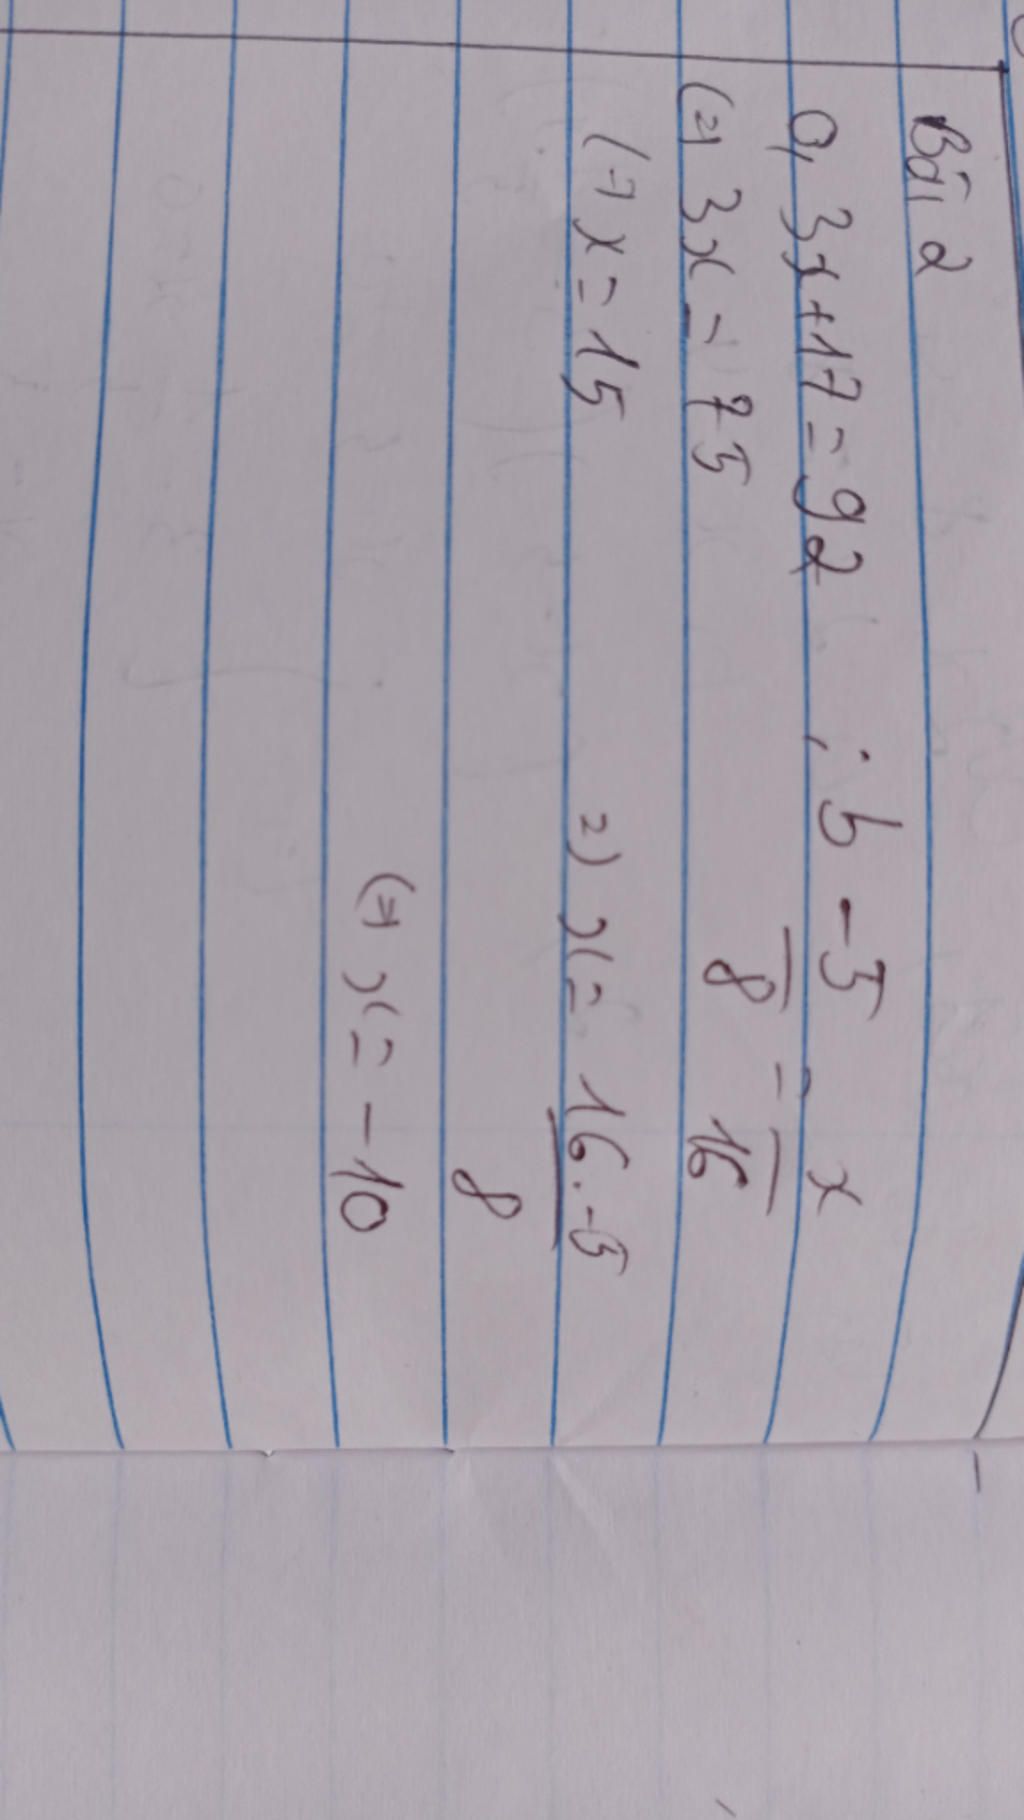 Bài 2
a, 3x+17=92 ; b -5/8 = x/16
(=) 3x = 75
(=) x = 15
=) x = 16.-5/8
(=) x = -10